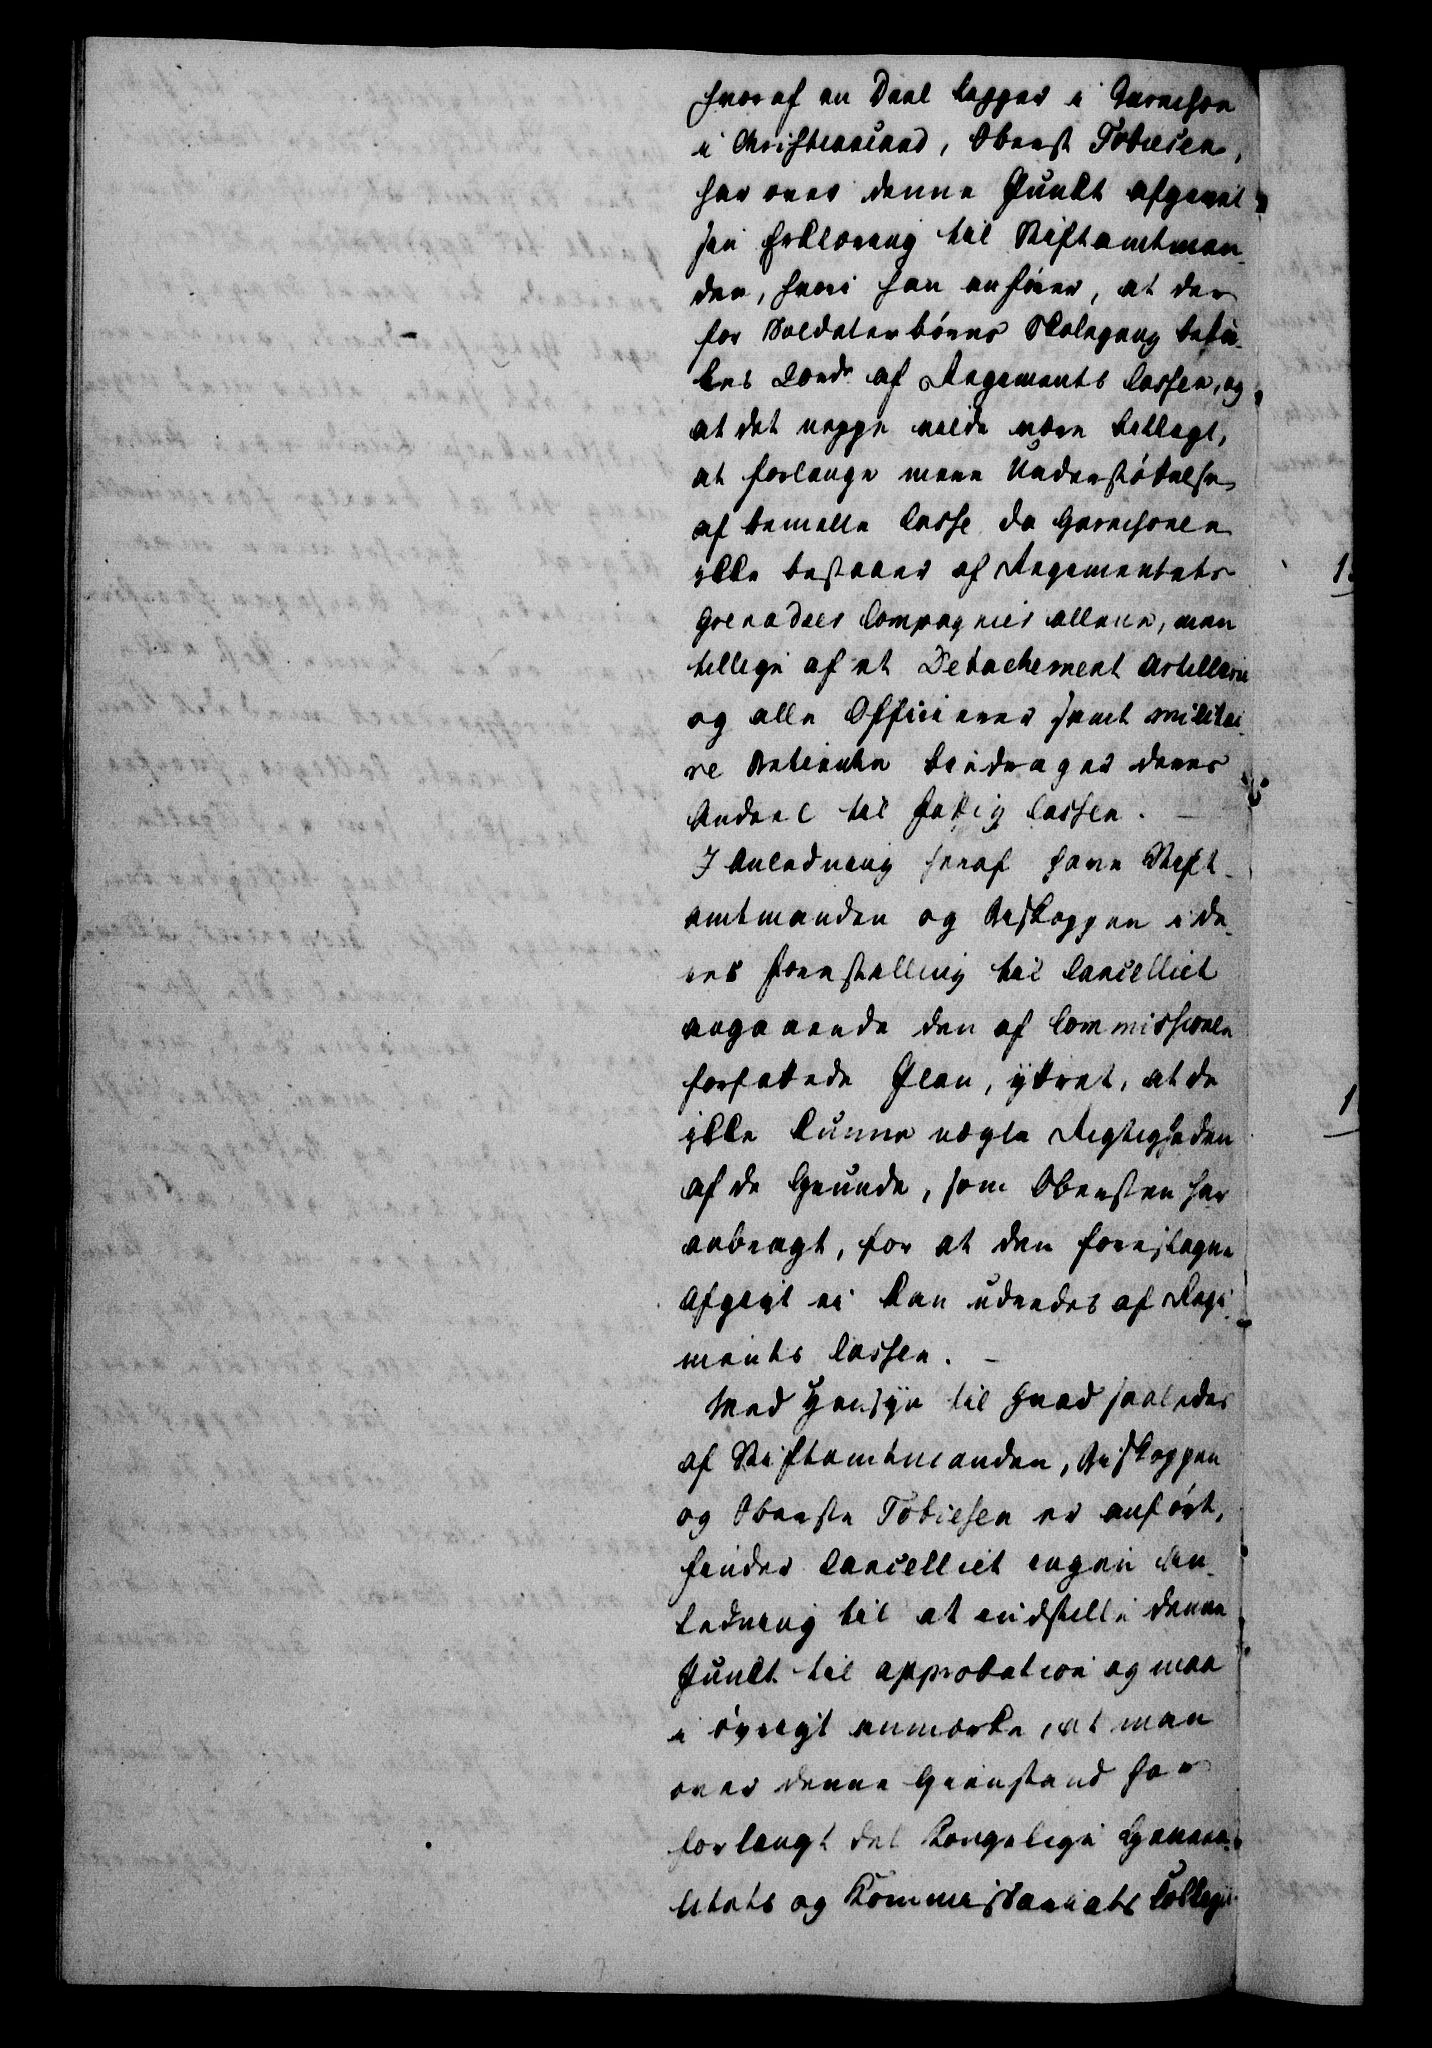 hvoraf en Deel ligger i Garnison
i Christiansand, Oberst Tobiesen,
har over denne Punkt afgivet
sin Erklæring til Stiftamtman-
den, hvori han anfører, at der
for Soldaterbørns Skolegang beta-
les af Regiments Cassen, og
at det neppe vilde være billigt,
at forlange mere Understøttelse
af bemelte Casse da Garnisonen
ikke bestaaer af Regimentets
Grenadeer Compagnier allene, men
tillige af et Detachement Artillerie
og alle Officierer samt militai-
re Betiente bidrager deres
Andeel til Fattig Cassen. —
I Anledning heraf have Stift-
amtmanden og Biskoppen i de-
res Forestilling til Cancelliet
angaaende den af Commissionen
forfattede Plan, yttret, at de
ikke kunne nægte Rigtigheden
af de Grunde, som Obersten har
anbragt, for at den foreslagne
Afgivt ei kan udredes af Regi-
ments Cassen. —
Med Hensyn til hvad saaledes
af Stiftamtmanden, Biskoppen
og Oberste Tobiesen er anført,
finder Cancelliet ingen An-
ledning til at indstille denne
Punkt til Approbation og maa
i øvrigt anmærke, at man
over denne Gienstand har
forlangt det Kongelige Genera-
litets og Kommissariats Collegii